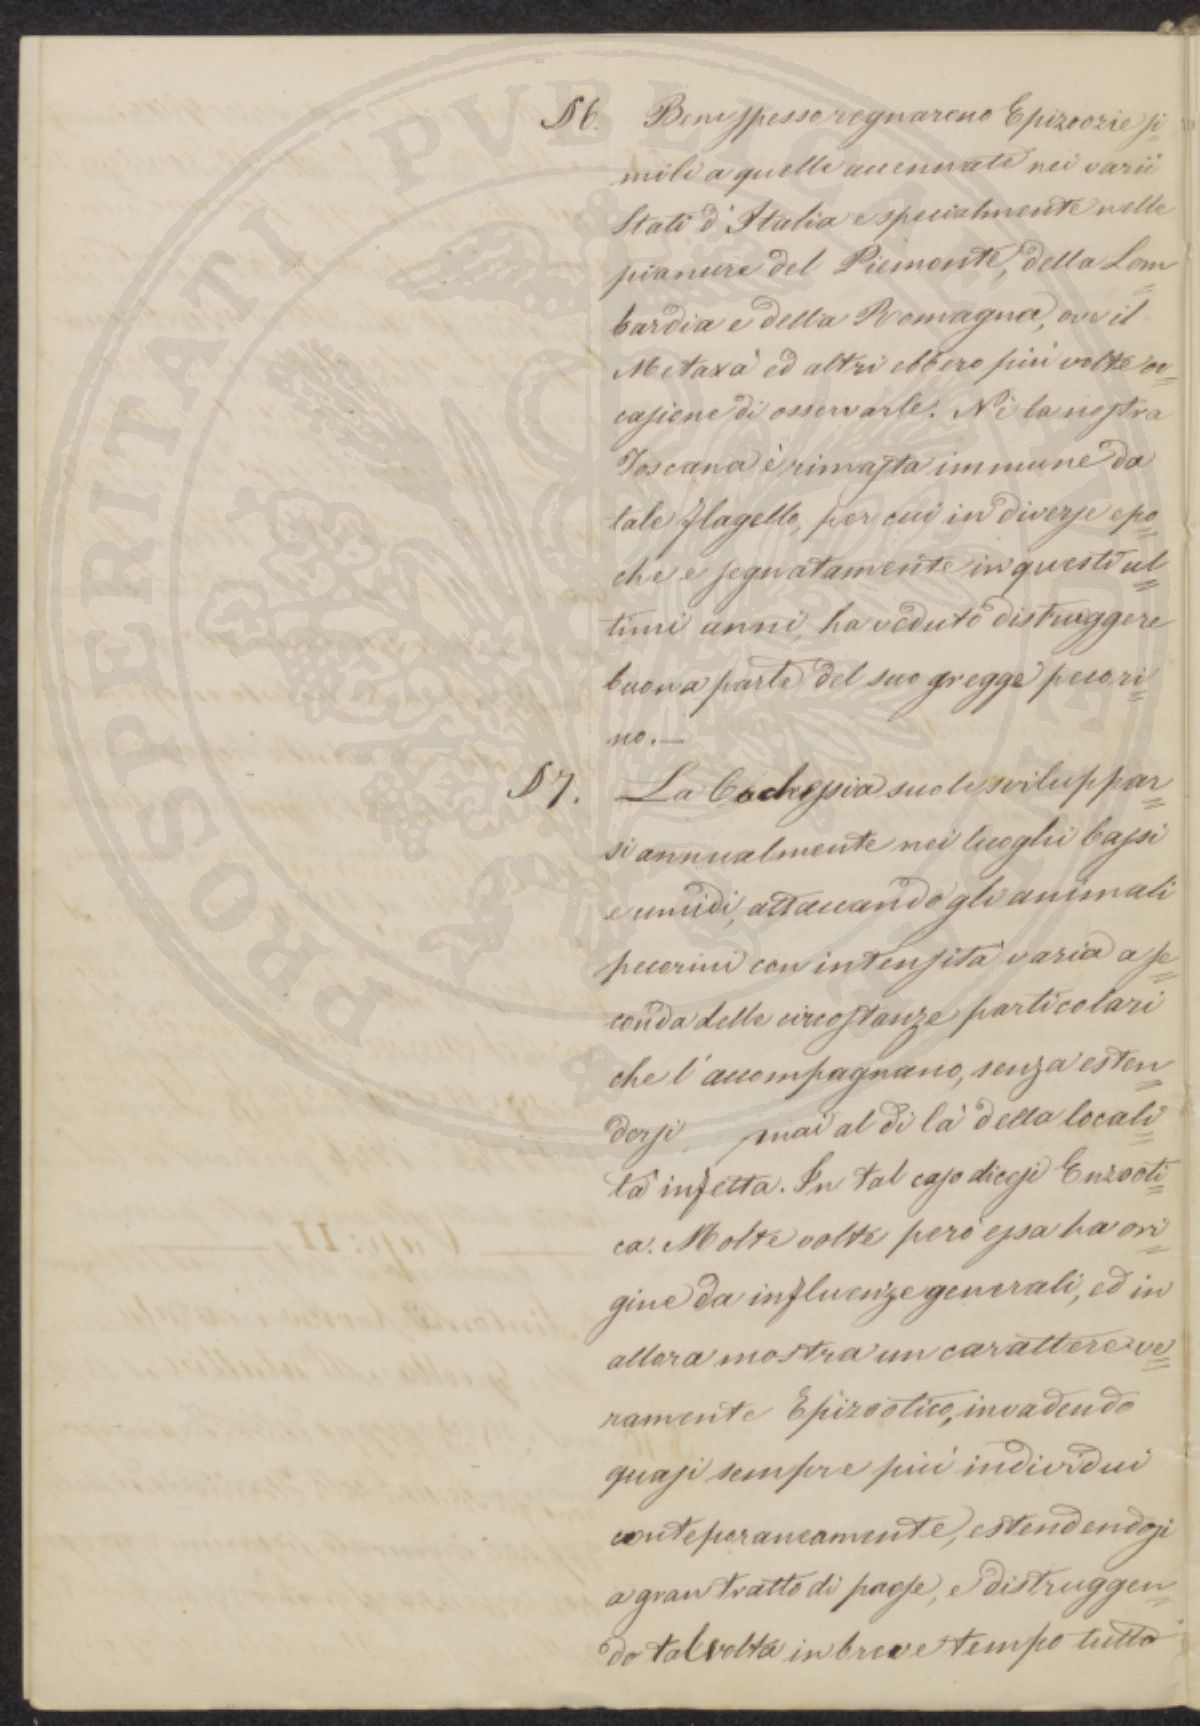 §6. Bene spesso regnarono Epizoozie si
mili a quelle accennate nei varii
Stati d'Italia e specialmente nelle
pianure del Piemonte, della Lom
bardia e della Romagna, ove il
Metaxà ed altri ebbero più volte oc
casione di osservarle. Nè la nostra
Toscana è rimasta immune da
tale flagello, per cui in diverse epo
che e segnatamente in questi ul
timi anni, ha veduto distruggere
buona parte del suo gregge pecori
no.—
§7. La Cachessia suole sviluppar
si annualmente nei luoghi bassi
e umidi, attaccando gli animali
pecorini con intensità varia a se
conda delle circostanze particolari
che l'accompagnano, senza esten
dersi mai al di là della locali
tà infetta. In tal caso dicesi Enzooti
ca. Molte volte però essa ha ori
gine da influenze generali, ed in
allora mostra un carattere ve
ramente Epizootico, invadendo
quasi sempre più individui
conteporaneamente, estendendosi
a gran tratto di paese, e distruggen
do talvolta in breve tempo tutto
PROSPERITATI PUBLICAE